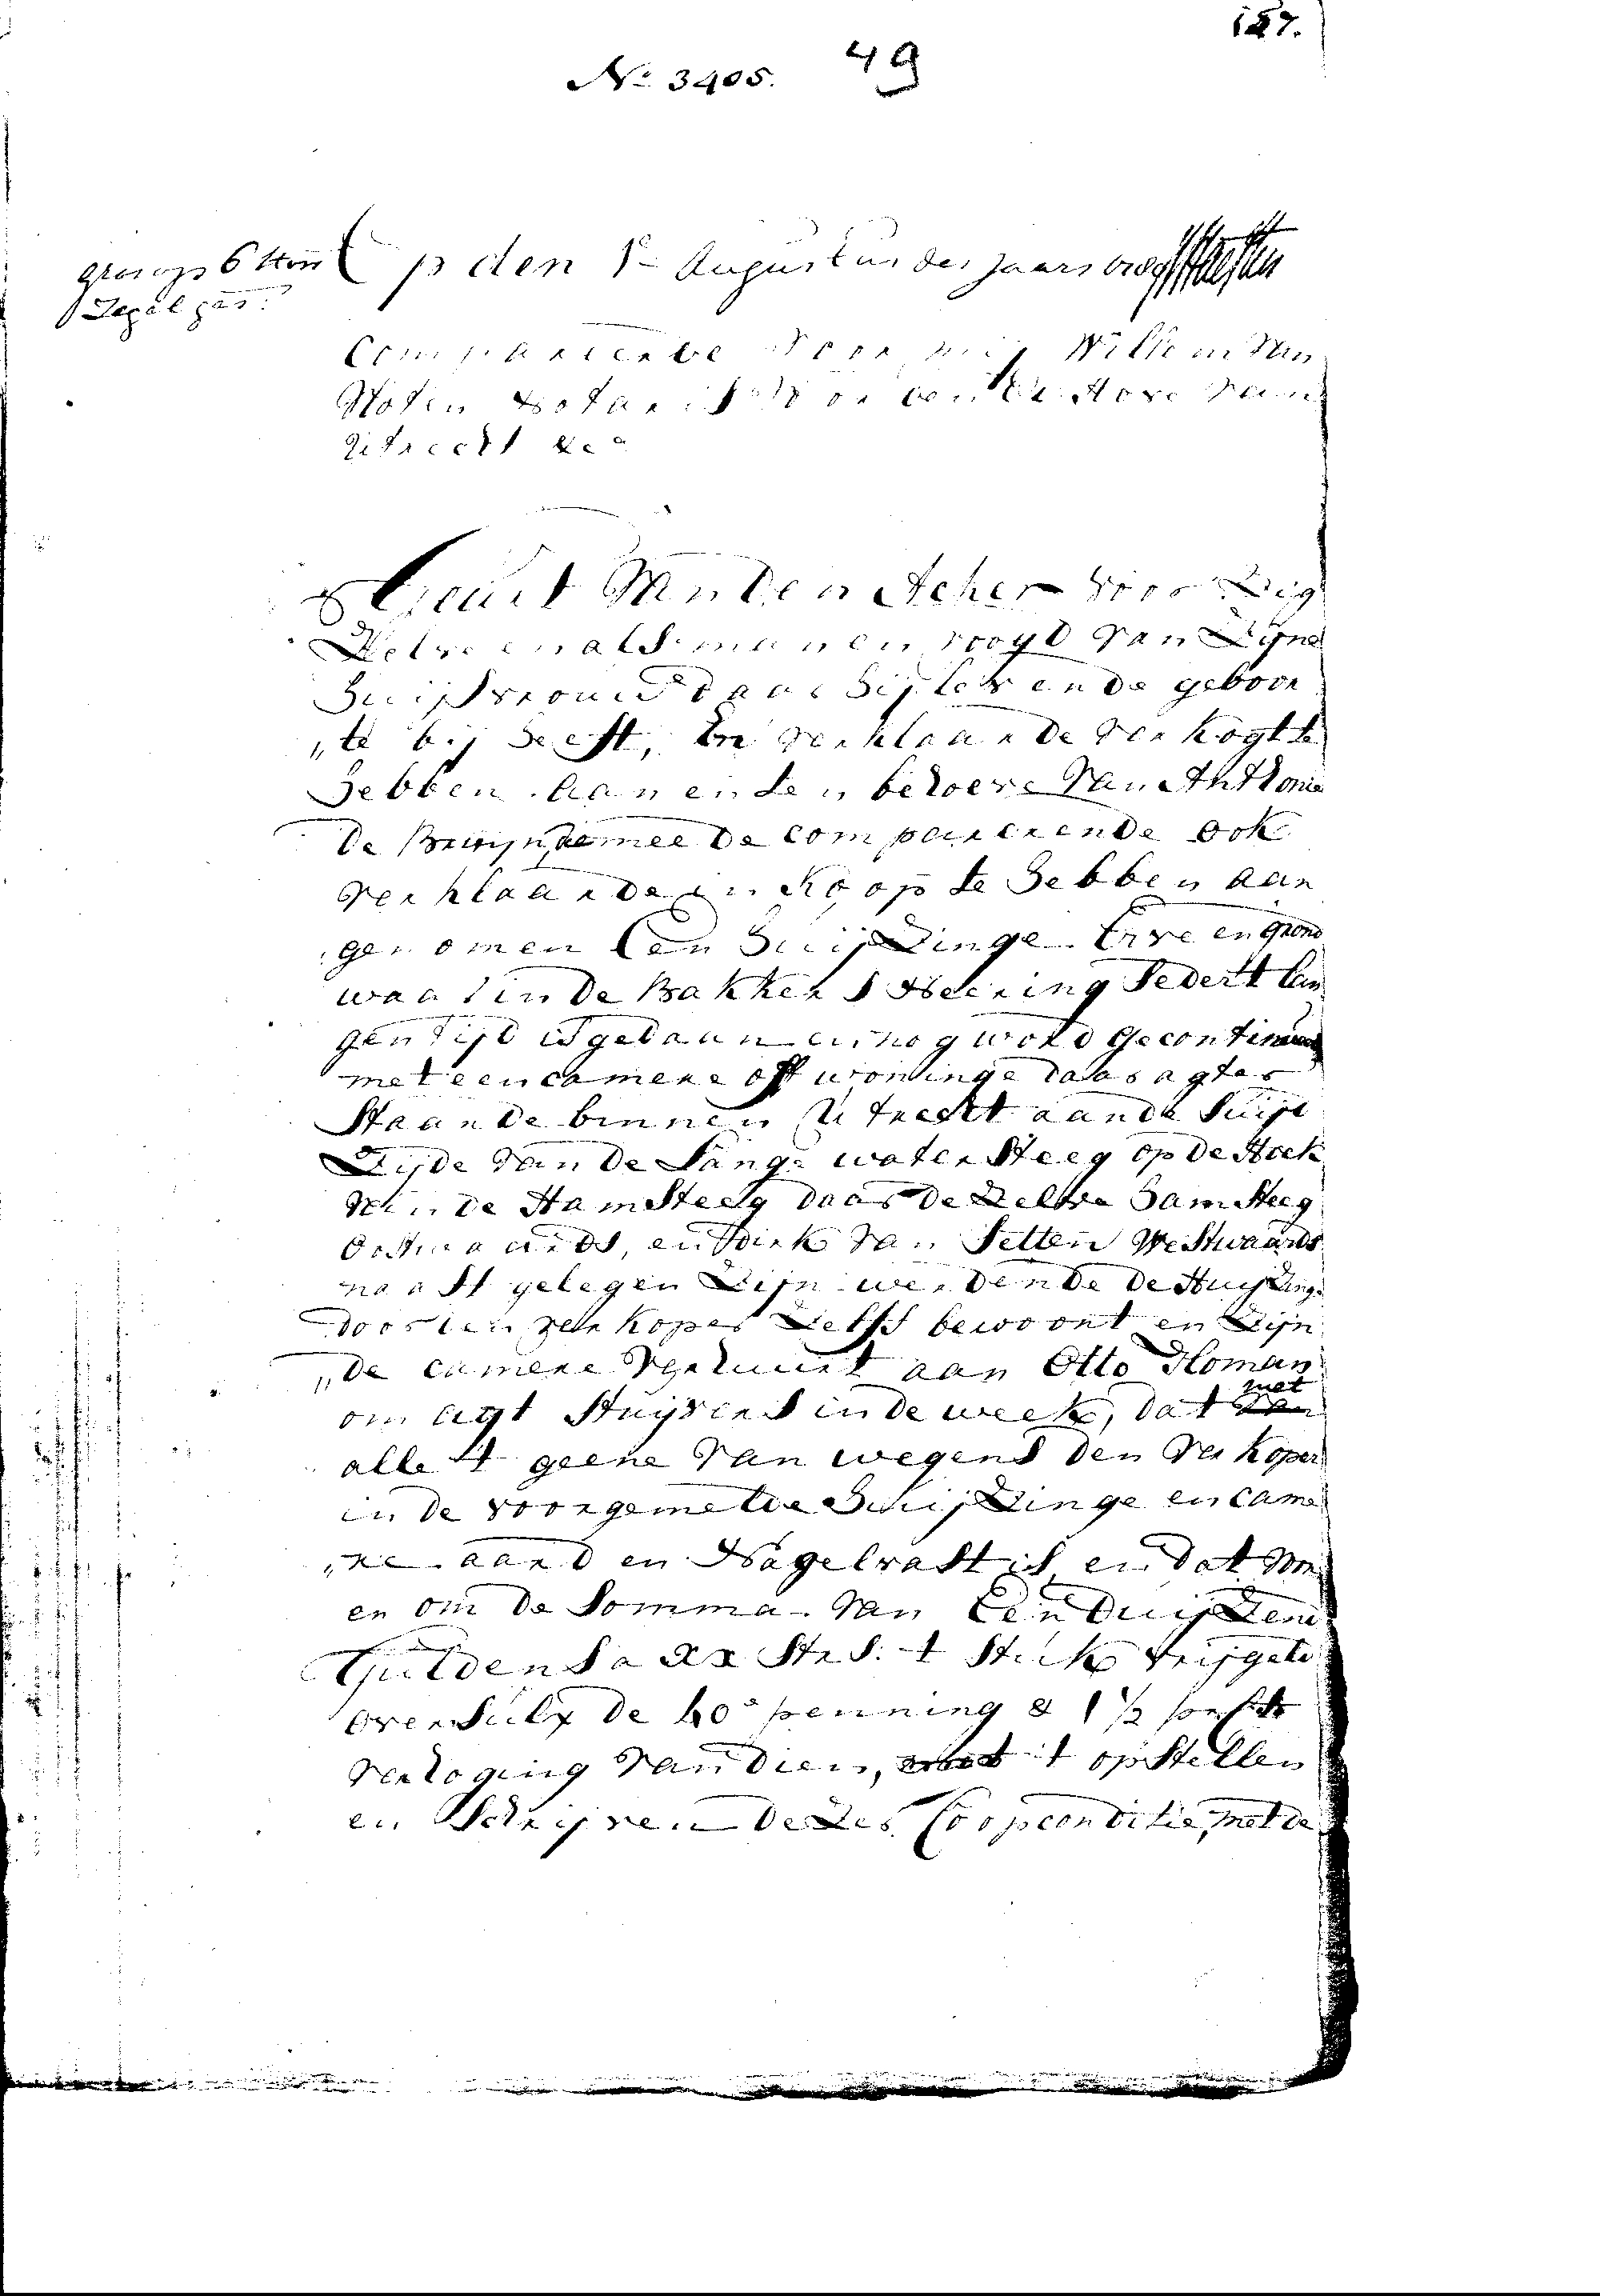 187.
No. 3405. 49
Op den 1e Augustus des jaars
segel
Compareerde voor mij Willem van
Noten Notaris S'Hofs van
Uitrecht &ca
van den Acher voor Zig
Zelve en als man en voogd van Zijne
Huijsvrouw daar bij Leevende geboor
„te bij heeft, En verklaarde verkogt te
hebben aan en ten behoeve van Anthonie
de Bruijn, de mee de compareerende ook
verklaarde in koop te hebben aan
genomen Een Huijzinge Erve en grond
waar in de Bakkers Neering sedert lan
gen tijd is gedaan en nog word gecontinueerd
met een camere off woninge daar agter
staande binnen Utrecht aan de suijt
Zijde van de Lange watersteeg op de Hoek
van de Hamsteeg daar de Zelve Hamsteeg
Oostwaards, en Dirk van Setten Westwaards
naast gelegen Zijn werdende de Huijzinge
door den verkoper Zelfs bewoont en Zijn
„de camere verhuurt aan Otto Homan
om agt Stuijvers in de week, dat met
alle 't geene van wegens den verkoper
in de voorgemelde Huijzinge en Came
„re aard en Nagelvast is en dat
en om de Somma van Een Duijzent
Guldens a XX Strs: 't Stuk vrijgelt
oversulx de 40e penning & 1½
verhoging van dien, 't opstellen
en Schrijven dezes Coopconditie, met de